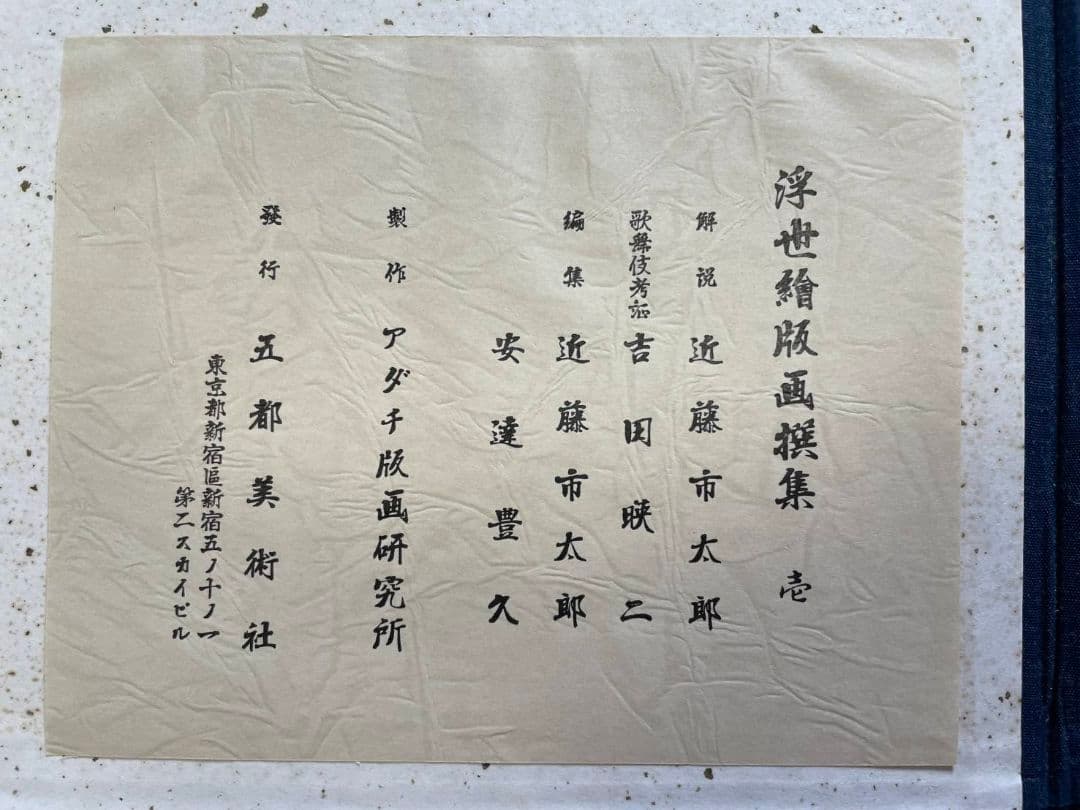 浮世繪版画撰集 壱
解説 近藤市太郎
歌舞伎考証 吉田映二
編集 近藤市太郎
安達豊久
製作 アダチ版画研究所
發行 五都美術社
東京都新宿區新宿五ノ十ノ一
第二スカイビル